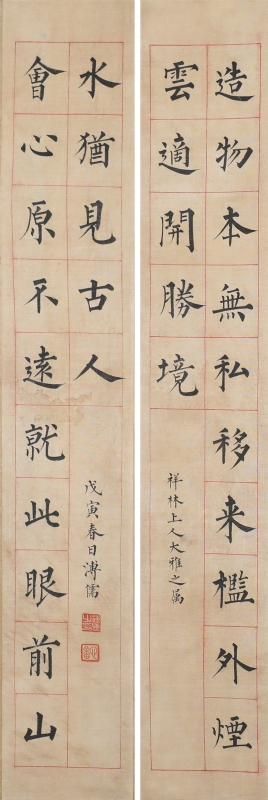 造物本無私移来檻外煙
雲適開勝境
祥林上人大雅之属
會心原不遠就此眼前山
水猶見古人
戊寅春日溥儒